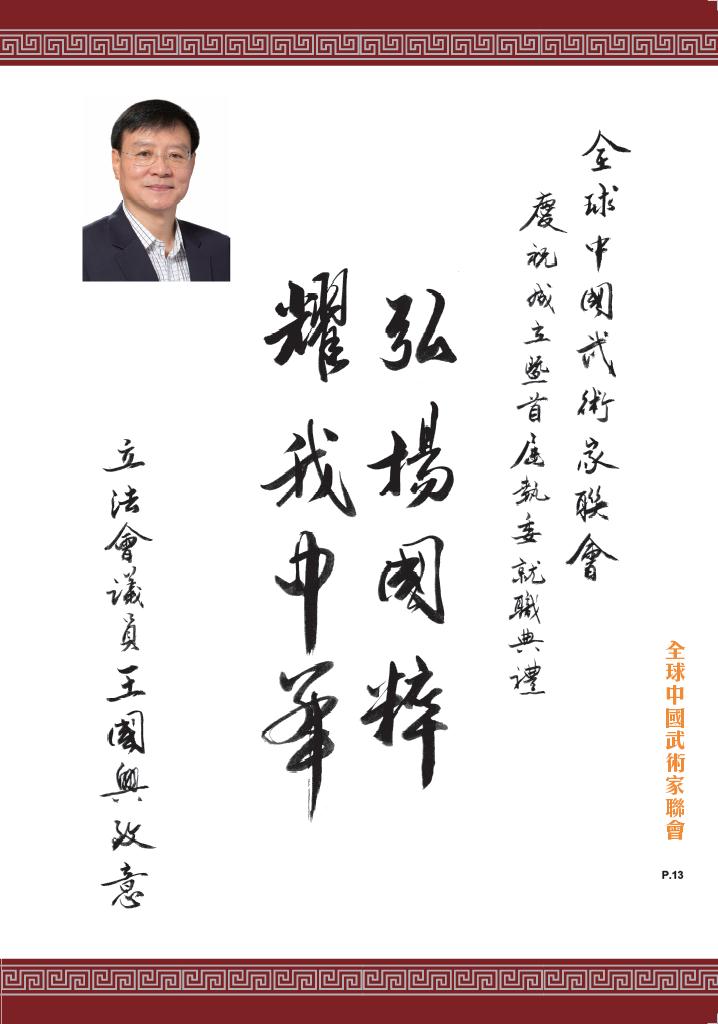 全球中國武術家聯會
慶祝成立暨首屆執委就職典禮
弘揚國粹
耀我中華
立法會議員王國興致意
全球中國武術家聯會
P.13